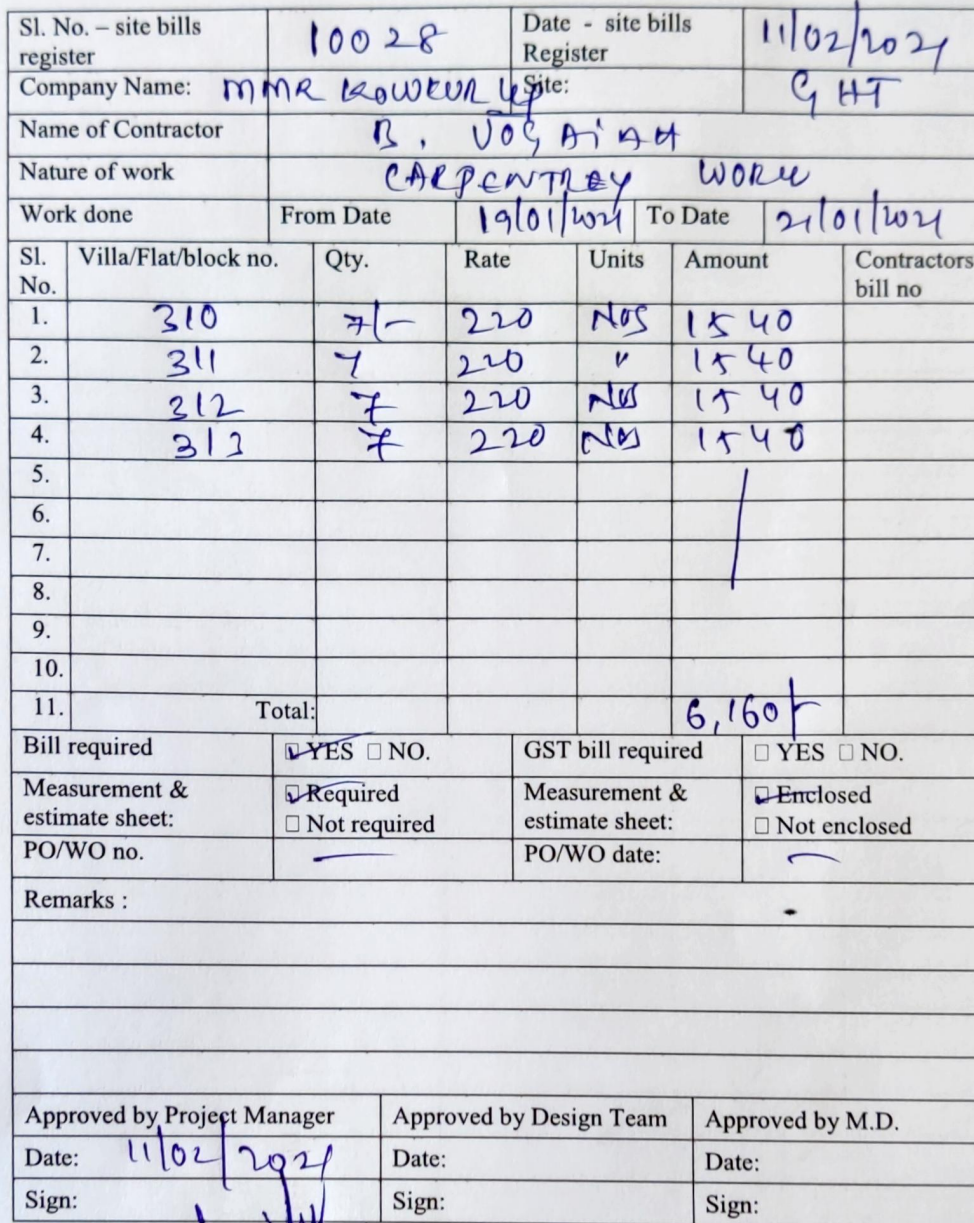 Sl. No. – site bills register 10028 Date - site bills Register 11/02/2021
Company Name: MMR KOWKUR LLP Site: GHT
Name of Contractor B. JOGAIAH
Nature of work CARPENTREY WORK
Work done From Date 19/01/2021 To Date 21/01/2021
Sl. No. Villa/Flat/block no. Qty. Rate Units Amount Contractors bill no
1. 310 7/- 220 Nos 1540
2. 311 7 220 " 1540
3. 312 7 220 Nos 1540
4. 313 7 220 Nos 1540
5.
6.
7.
8.
9.
10.
11. Total: 6,160/-
Bill required YES NO. GST bill required YES NO.
Measurement & estimate sheet: Required Not required Measurement & estimate sheet: Enclosed Not enclosed
PO/WO no. — PO/WO date: —
Remarks :
Approved by Project Manager Approved by Design Team Approved by M.D.
Date: 11/02/2021 Date: Date:
Sign: Sign: Sign: